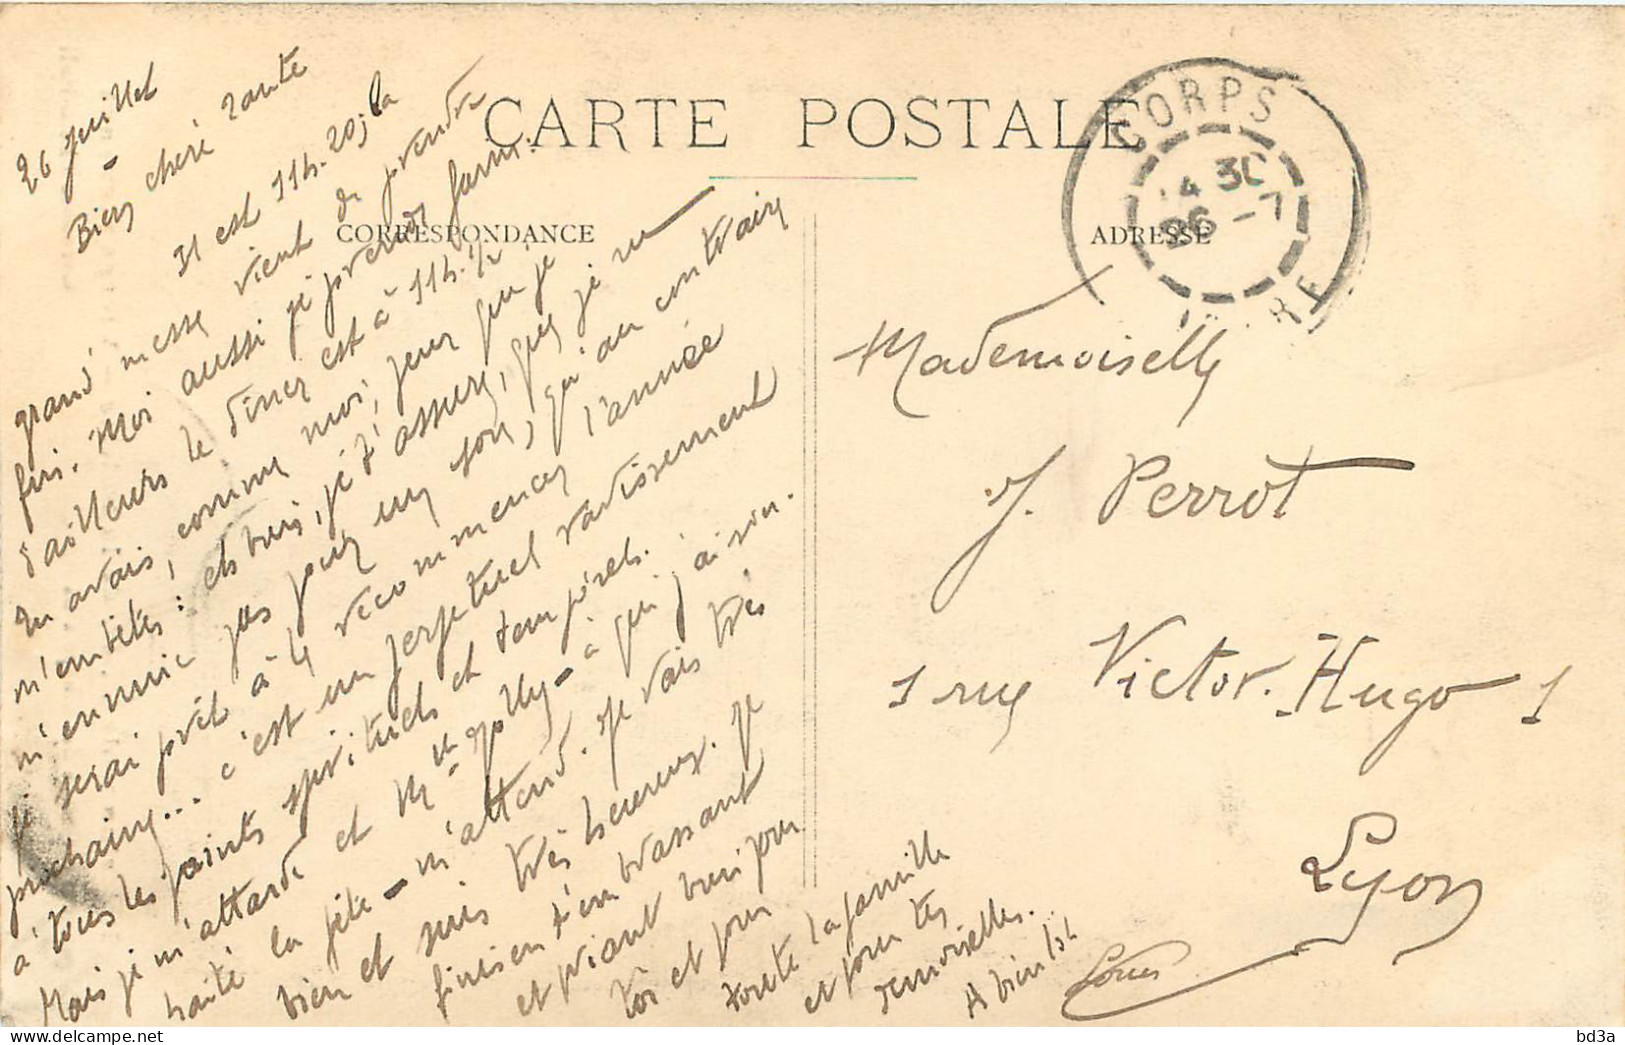 CARTE POSTALE
CORRESPONDANCE
ADRESSE
CORPS
14 30
26 -7
26 Juillet
Bien chère Tante
Il est 11h.20; la
grand' messe vient de prendre
fin. Moi aussi je prends faim:
d'ailleurs le dîner est à 11h.1/2.
Tu avais, comme moi, peur que je
m'embête: eh bien, je t'assure, que je ne
m'ennuie pas pour un sou, qu'au contraire
je serai prêt à le recommencer l'année
prochaine... c'est un perpetuel ravissement
à tous les points spirituels et temporels.
Mais je m'attarde et Mlle Jolly - à qui j'ai sou-
haité la fête - m'attend. Je vais très
bien et suis très heureux. Je
finis en t'embrassant
et priant bien pour
toi et pour
toute la famille
et pour tes
demoiselles.
A bientôt
Louis
Mademoiselle
J. Perrot
1 rue Victor-Hugo 1
Lyon
bd3a